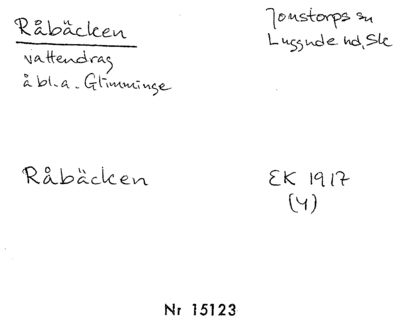 Råbäcken
Jonstorps sn
Luggude hd, Sk
vattendrag
å bl.a. Glimminge
Råbäcken
EK 1917
(4)
Nr 15123